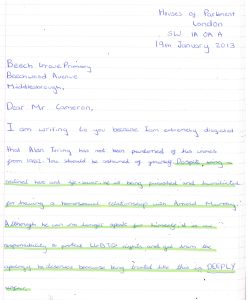 Houses of Parliment
London
SW 1A 0A A
19th January 2013
Beech Grove Primary
Beechwood Avenue
Middlesbrough,
Dear Mr. Cameron,
I am writing to you because I am extremely disgusted
that Alan Turing has not been pardoned of his crimes
from 1952. You should be ashamed of yourself. Despite being
retired he's
still
being punished and humiliated
for having a homosexual relationship with Arnold Murray.
Although he can no longer speak for himself, it is our
responsibility to protect LGBTQ rights and get them the
apology he deserves because being treated like this is DEEPLY